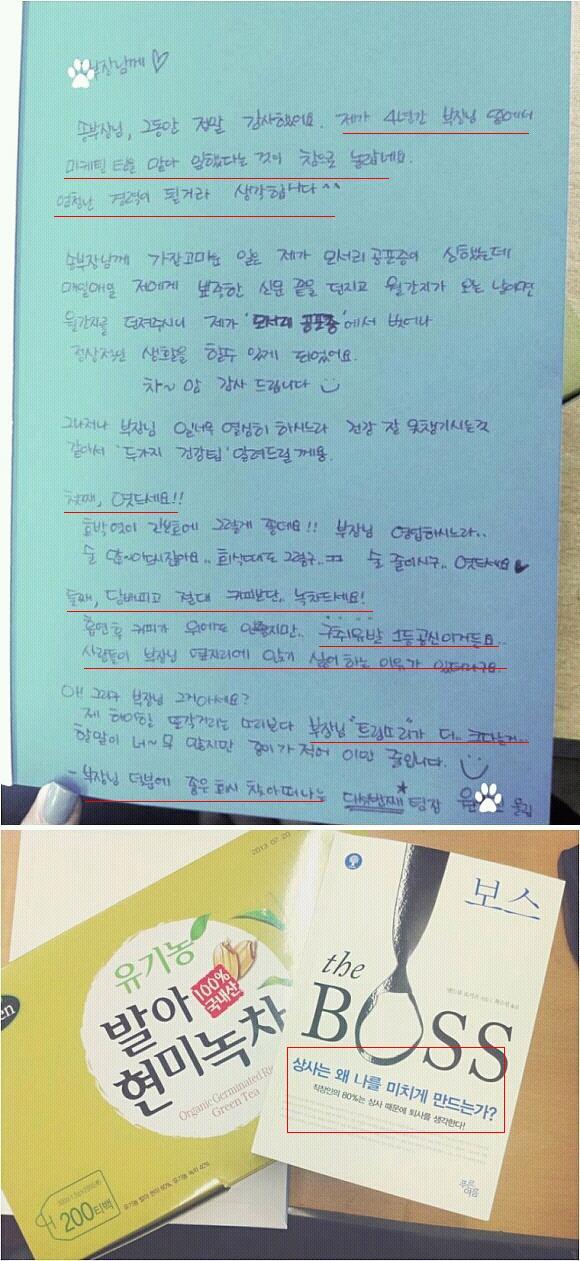 부장님께 ♡
송부장님, 그동안 정말 감사했어요. 제가 4년간 부장님 옆에서
마케팅 팀을 맡아 일했다는 것이 참으로 놀랍네요.
엄청난 경력이 될거라 생각합니다^^
송부장님께 가장고마운 일은 제가 모서리 공포증이 심했는데
매일매일 저에게 뾰족한 신문 끝을 던지고 월간지가 오는 날이면
월간지를 던져주시니 제가 '모서리 공포증'에서 벗어나
정상적인 생활을 할수 있게 되었어요.
차~암 감사 드립니다
그나저나 부장님 일너무 열심히 하시느라 건강 잘 못챙기시는것
같아서 '두가지 건강팁' 알려드릴께용.
첫째, 엿드세요!!
호박엿이 간보호에 그렇게 좋데요!! 부장님 영업하시느라..
술 많~이드시잖아요.. 회식때도 그렇구..ㅋㅋ 술 줄이시구.. 엿드세요♥
둘째, 담배피고 절대 커피보단.. 녹차드세요!
흡연후 커피가 위에도 안좋지만.. 구취유발 1등공신이거든요..
사람들이 부장님 옆자리에 앉기 싫어하는 이유가 있더라구요.
아! 그리구 부장님 그거아세요?
제 하이힐 또각거리는 소리보다 부장님 "트림소리"가 더.. 크다는거..
할말이 너~무 많지만 종이가 적어 이만 줄입니다.
- 부장님 덕분에 좋은 회사 찾아떠나는 다섯번째★ 팀장 윤 올림
2013 07.20
유기농
100%
국내산
발아
현미녹차
Organic Germinated Rice
Green Tea
200티백
보스
the
BOSS
상사는 왜 나를 미치게 만드는가?
직장인의 80%는 상사 때문에 퇴사를 생각한다!
푸른
여름